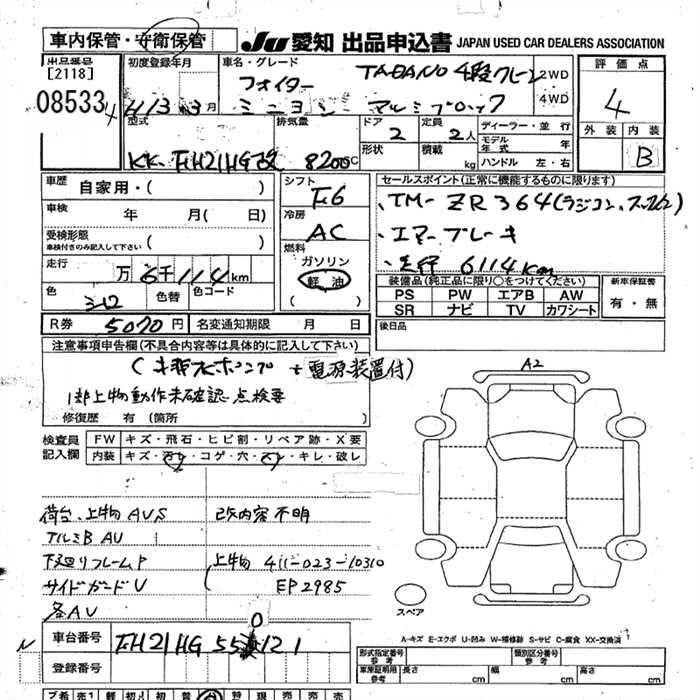 車内保管・守衛保管 Ju 愛知 出品申込書 JAPAN USED CAR DEALERS ASSOCIATION
出品番号 初度登録年月 車名・グレード 評価点
[2118] フォイター TADANO 4段クレーン 2WD
08533 H13 3月 ミニヨン アルミブロック 4WD 4
型式 排気量 ドア 定員 ディーラー・並行 外装 内装
2 2人 モデル年式 年
KK-FH21HG改 8200CC 形状 積載 kg ハンドル 左・右 B
車歴 自家用・( ) シフト F6 セールスポイント(正常に機能するものに限ります)
車検 年 月( 日) 冷房 ・TM-ZR364(ラジコン、フックイン)
受検形態 車検付きのみ記入して下さい ( ) AC ・エアーブレーキ
走行 万6千114km 燃料 ガソリン ・走行 6114km
色 色替 色コード 軽油 装備品(純正品に限り○をつけてください) 新車保証書
( ) PS PW エアB AW 有・無
SR ナビ TV カワシート
R券 5070円 名変通知期限 月 日 後日品
注意事項申告欄(不具合内容等は具体的に記入して下さい)
電源装置付) A2
上物動作未確認 点検要
修復歴 有 (箇所 )
検査員記入欄 FW キズ・飛石・ヒビ割・リペア跡・X要
内装 キズ・汚レ・コゲ・穴・スレ・キレ・破レ
荷台、上物 AUS 改内容不明
アルミB AU
下廻りフレームP 上物 411-023-10310
サイドガードU EP2985
各AU スペア
0
車台番号 FH21HG 55 121 A-キズ E-エクボ U-凹み W-補修跡 S-サビ C-腐食 XX-交換済
登録番号 形式指定番号 参考 類別区分番号 参考
車庫証明用 参考 長さ cm 幅 cm 高さ cm